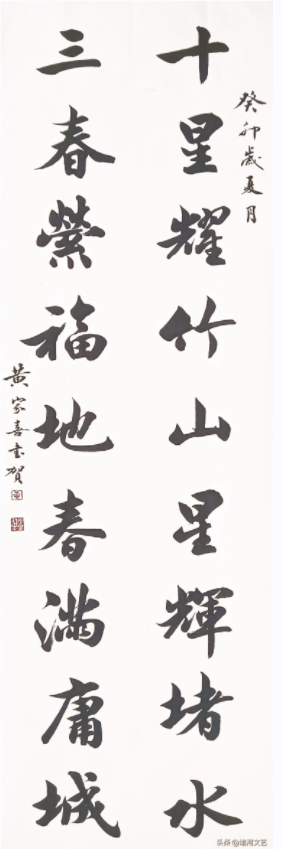 癸卯歲夏月
十星耀竹山星輝堵水
三春縈福地春滿庸城
黄家喜书贺
头条@堵河文艺